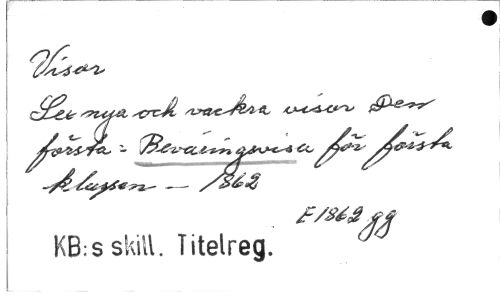 Visor
Sex nya och vackra visor Den
första = Beväringsvisa för första
klassen — 1862
E 1862 gg
KB:s skill. Titelreg.